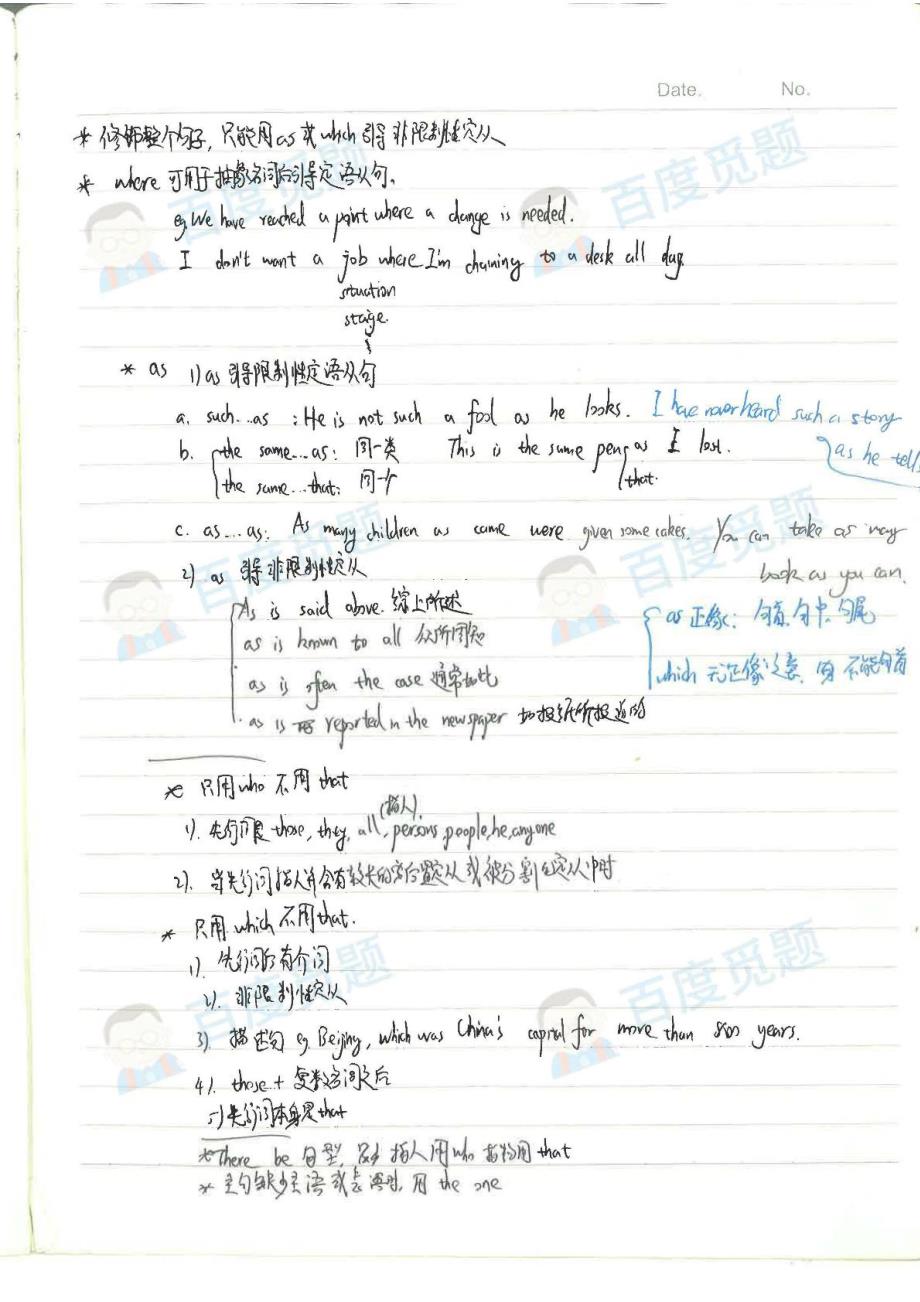 Date. No.
* 修饰整个句子，只能用as或which引导非限制性定从
* where可用于抽象名词后引导定语从句.
eg We have reached a point where a change is needed.
I don't want a job where I'm chaining to a desk all day.
situation
stage.
* as 1) as引导限制性定语从句
a. such...as : He is not such a fool as he looks. I have never heard such a story
as he tells
b. the same...as: 同一类 This is the same pen as I lost.
the same...that: 同一个 that.
c. as...as: As many children as came were given some cakes. You can take as many
book as you can.
2) as 引导非限制性定从
As is said above. 综上所述
as 正像: 句首.句中.句尾
as is known to all 众所周知
as is often the case 通常如此
which 无正像之意, 不能句首
as is reported in the newspaper 如报纸所报道的
* 只用who不用that
(指人)
1). 先行词是those, they, all, persons, people, he, anyone
2). 当先行词指人并含有较长的后置定从或被分割的定从中时
* 只用which不用that.
1). 先行词后有介词
2). 非限制性定从
3). 描述句 eg. Beijing, which was China's capital for more than 800 years.
4). those + 复数名词之后
5) 先行词本身是that
* There be 句型, 指人用who 指物用that
* 主句缺少主语或表语时, 用 the one
百度觅题
百度觅题
百度觅题
百度觅题
百度觅题
百度觅题